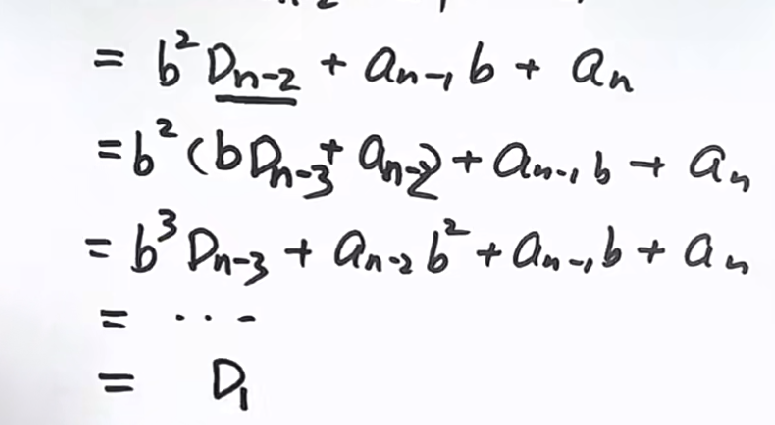 = b² Dₙ₋₂ + aₙ₋₁ b + aₙ
= b² (b Dₙ₋₃ + aₙ₋₂) + aₙ₋₁ b + aₙ
= b³ Dₙ₋₃ + aₙ₋₂ b² + aₙ₋₁ b + aₙ
= ...
= D₁